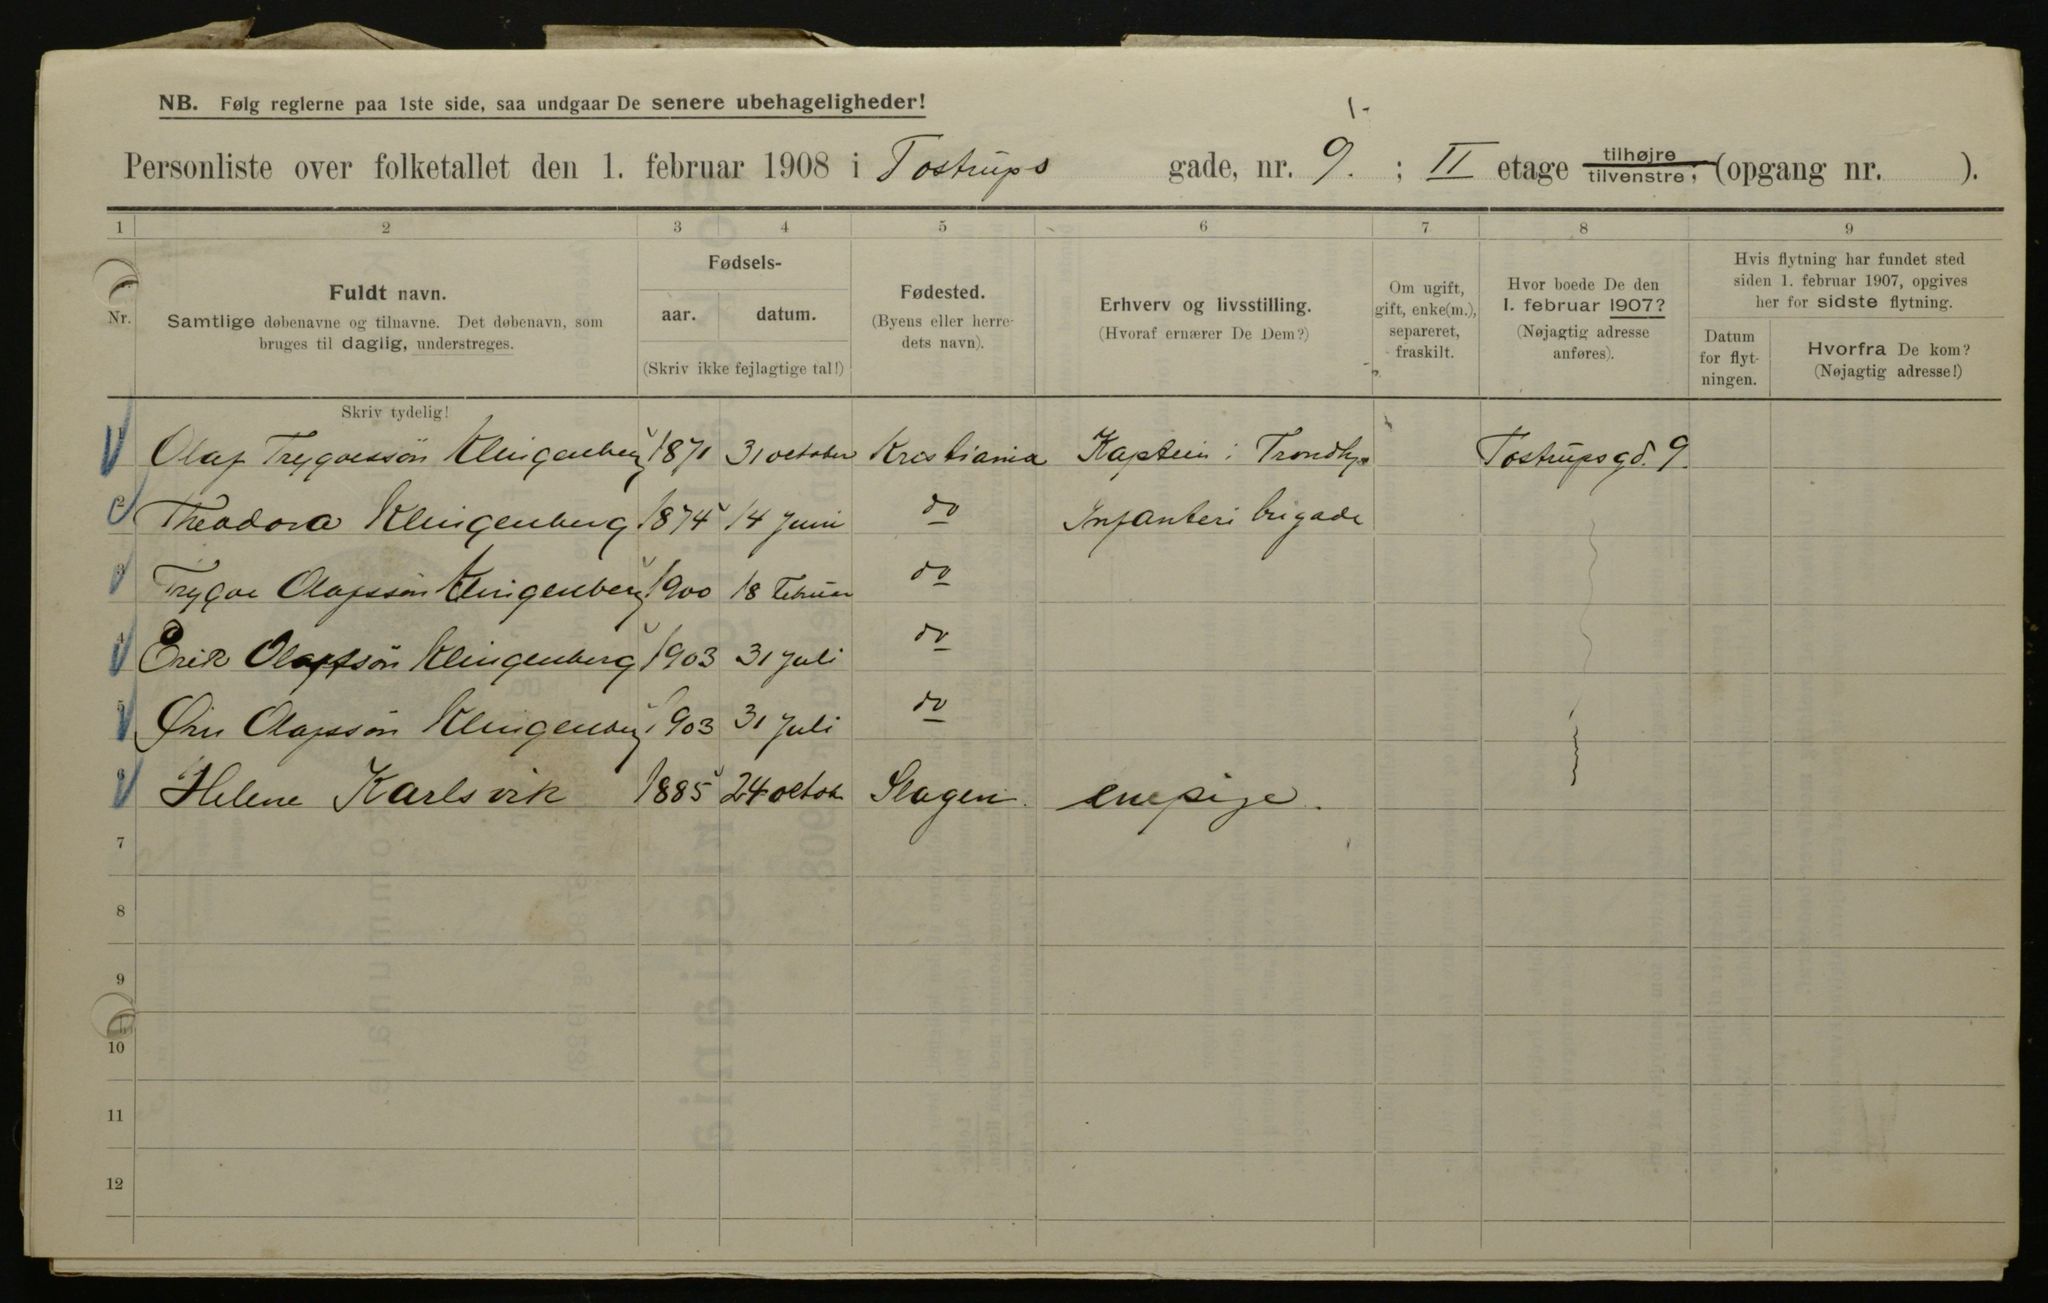 NB. Følg reglerne paa 1ste side, saa undgaar De senere ubehageligheder!
Personliste over folketallet den 1. februar 1908 i Tostrups gade, nr. 9. ; II etage tilhøjre tilvenstre; (opgang nr. ).
1 2 3 4 5 6 7 8 9
Nr.
Fuldt navn.
Samtlige døbenavne og tilnavne. Det døbenavn, som
bruges til daglig, understreges.
Skriv tydelig!
Fødsels-
aar. datum.
(Skriv ikke fejlagtige tal!)
Fødested.
(Byens eller herre-
dets navn).
Erhverv og livsstilling.
(Hvoraf ernærer De Dem?)
Om ugift,
gift, enke(m.),
separeret,
fraskilt.
Hvor boede De den
1. februar 1907?
(Nøjagtig adresse
anføres).
Hvis flytning har fundet sted
siden 1. februar 1907, opgives
her for sidste flytning.
Datum
for flyt-
ningen.
Hvorfra De kom?
(Nøjagtig adresse!)
Olaf Trygvessön Klingenberg 1871 31 october Kristiania Kaptein i Trondhjs Tostrupsgd. 9.
2 Theodora Klingenberg 1874 14 Juni do Infanteri brigade
3 Trygve Olafssön Klingenberg 1900 18 Februar do
4 Erik Olafssön Klingenberg 1903 31 Juli do
5 Ørn Olafssön Klingenberg 1903 31 Juli do
6 Helene Karlsvik 1885 24 octob Slagen. enepige.
7
8
9
10
11
12